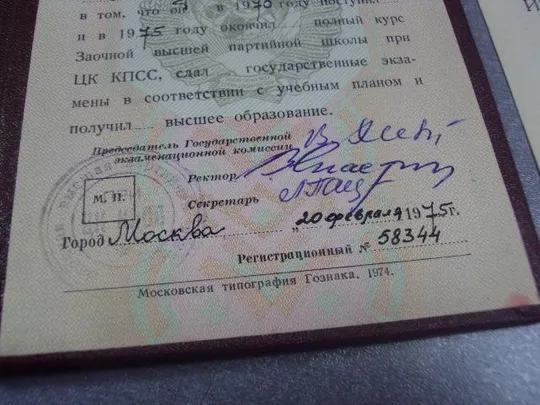 в том, что он в 1970 году поступил
и в 1975 году окончил полный курс
Заочной высшей партийной школы при
ЦК КПСС, сдал государственные экза-
мены в соответствии с учебным планом и
получил высшее образование.
Председатель Государственной
экзаменационной комиссии
Ректор
Секретарь
М. П.
Город Москва „20 февраля 1975г.
Регистрационный № 58344
Московская типография Гознака. 1974.